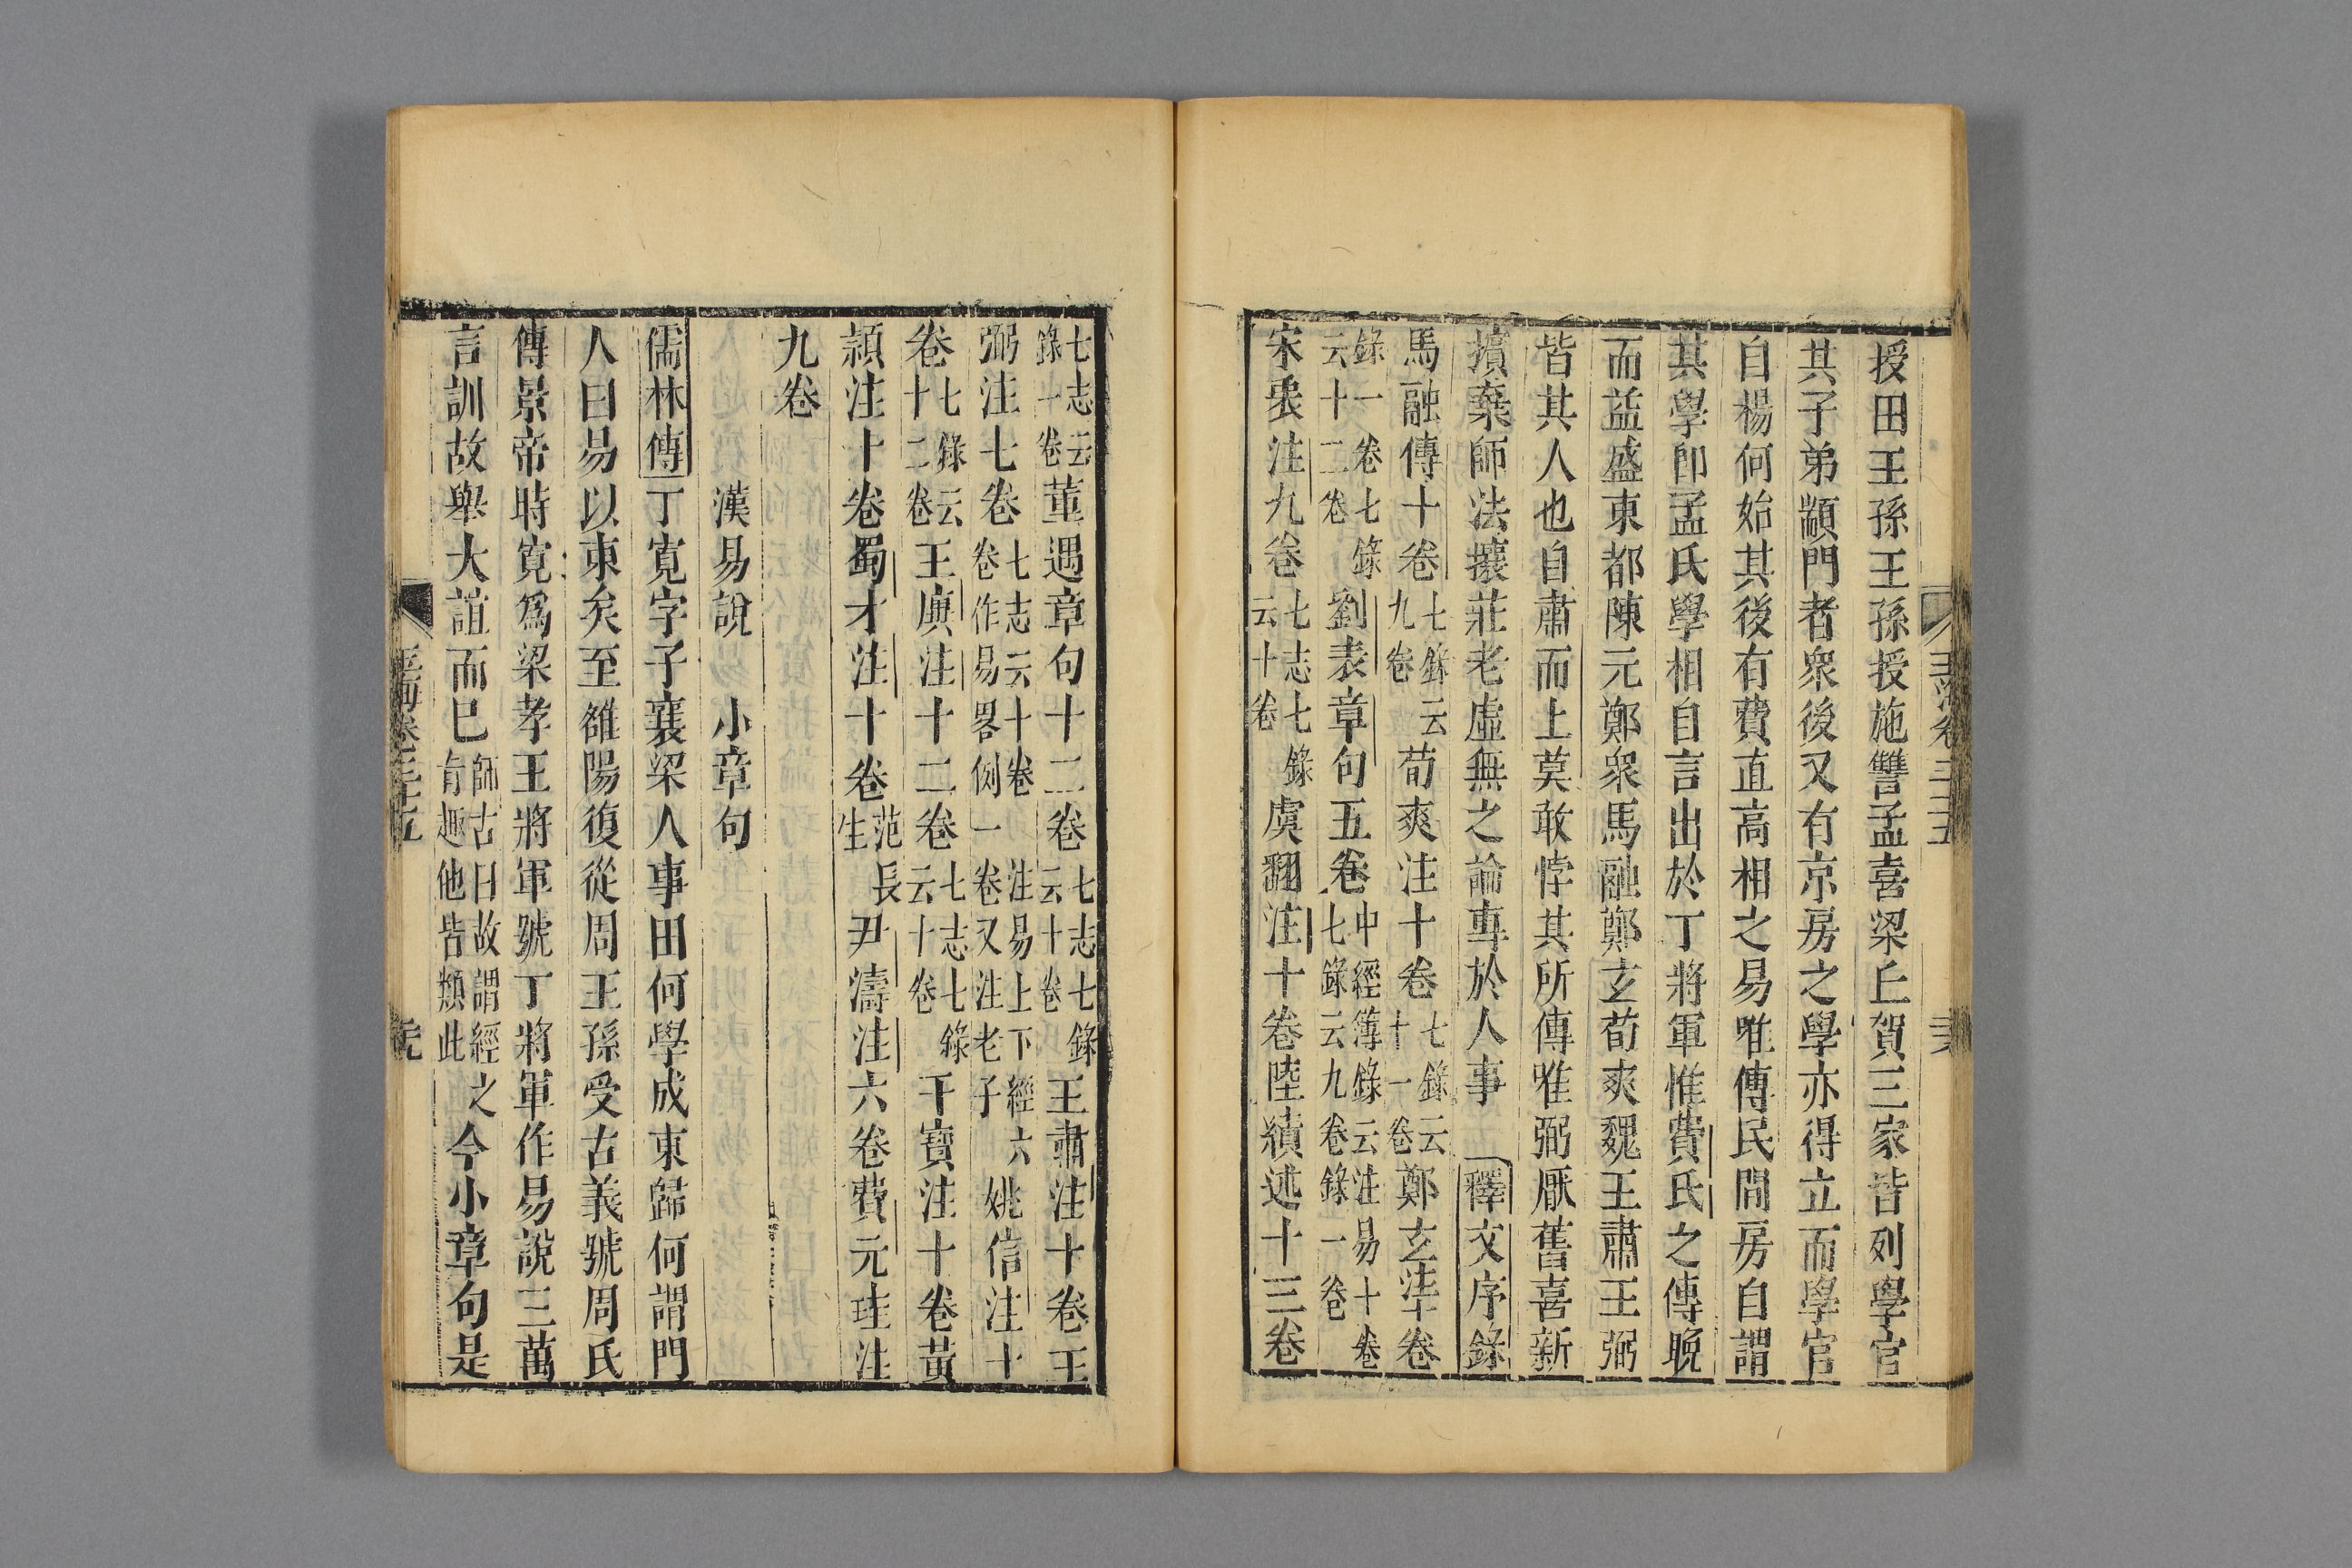 授田王孫王孫授施讐孟喜梁丘賀三家皆列學官
其子弟顓門者衆後又有京房之學亦得立而學官
自楊何始其後有費直高相之易唯傳民間房自謂
其學卽孟氏學相自言出於丁將軍惟費氏之傳晚
而益盛東都陳元鄭衆馬融鄭玄荀爽魏王肅王弼
皆其人也自肅而上莫敢悖其所傳唯弼厭舊喜新
擯棄師法攘莊老虛無之論專於人事 釋文序錄
馬融傳十卷七錄云九卷荀爽注十卷七錄云十一卷鄭玄注十卷
錄一卷七錄云十二卷劉表章句五卷中經簿錄云注易十卷七錄云九卷錄一卷
宋衷注九卷七志七錄云十卷虞翻注十卷陸績述十三卷
七志云錄一卷董遇章句十二卷七志七錄云十卷王肅注十卷王
弼注七卷七志云十卷注易上下經六卷作易畧例一卷又注老子姚信注十
卷七錄云十二卷王廙注十二卷七志七錄云十卷干寶注十卷黃
潁注十卷蜀才注十卷范長生尹濤注六卷費元珪注
九卷
漢易說 小章句
儒林傳丁寬字子襄梁人事田何學成東歸何謂門
人曰易以東矣至雒陽復從周王孫受古義號周氏
傳景帝時寬爲梁孝王將軍號丁將軍作易說三萬
言訓故舉大誼而巳師古曰故謂經之肯趣他皆類此今小章句是